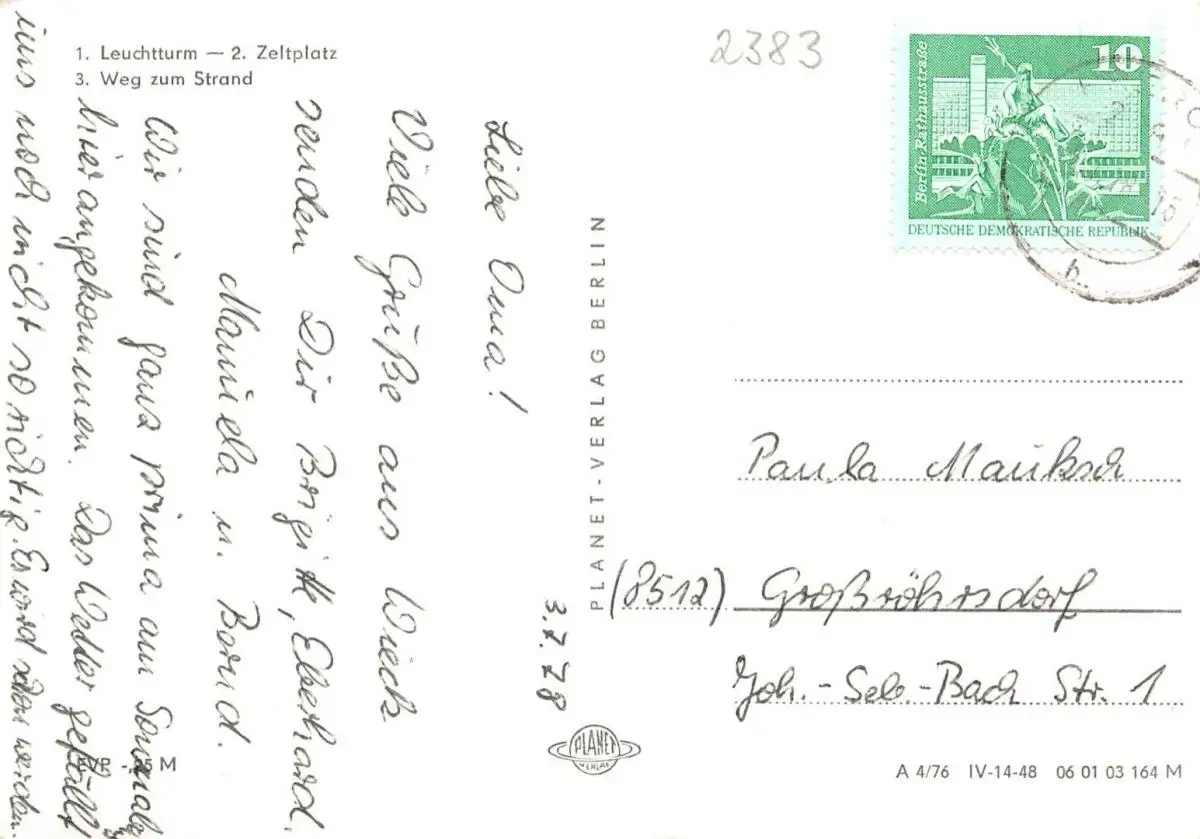 1. Leuchtturm — 2. Zeltplatz
3. Weg zum Strand
2383
10
Berlin-Rathausstraße
DEUTSCHE DEMOKRATISCHE REPUBLIK
3.7.78
Liebe Oma!
Viele Grüße aus Wieck
senden Dir Brigitt, Eberhard,
Manuela u. Bernd.
Wir sind ganz prima am Sonnab.
hier angekommen. Das Wetter gefällt
uns noch nicht so richtig. Es wird schon werden.
PLANET-VERLAG BERLIN
Paula Mauksch
(8512) Großröhrsdorf
Joh.-Seb.-Bach Str. 1
PLANET
VERLAG
M
A 4/76 IV-14-48 06 01 03 164 M